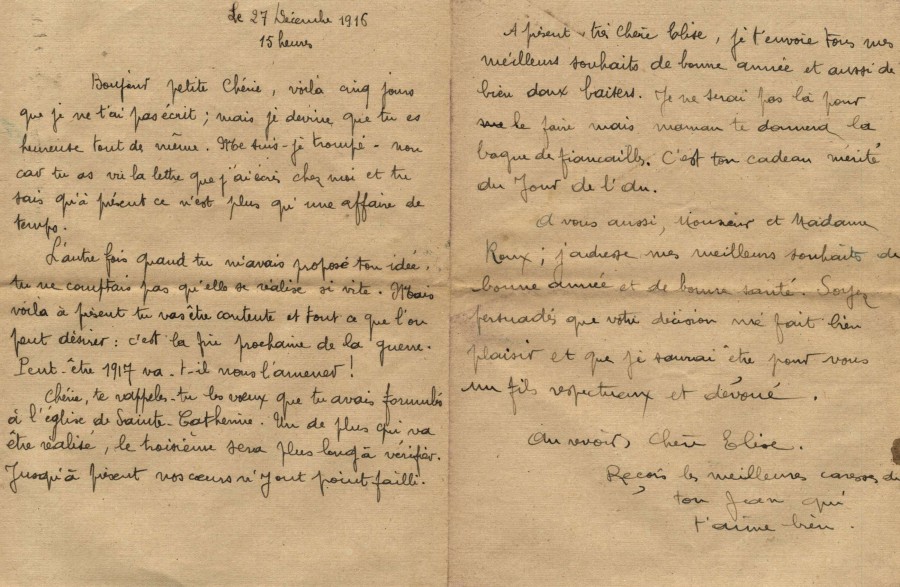 Le 27 Décembre 1916
15 heures
Bonjour petite Chérie, voilà cinq jours
que je ne t'ai pas écrit ; mais je devine que tu es
heureuse tout de même. Me suis-je trompé - non
car tu as vu la lettre que j'ai écris chez moi et tu
sais qu'à présent ce n'est plus qu'une affaire de
temps.
L'autre fois quand tu m'avais proposé ton idée,
tu ne comptais pas qu'elle se réalise si vite. Mais
voilà à présent tu vas être contente et tout ce que l'on
peut désirer : c'est la fin prochaine de la guerre.
Peut-être 1917 va-t-il nous l'amener !
Chérie, te rappeles-tu les vœux que tu avais formulés
à l'église de Sainte-Catherine. Un de plus qui va
être réalisé, le troisième sera plus long à vérifier.
Jusqu'à présent nos cœurs n'y ont point failli.
A présent, très Chère Elise, je t'envoie tous mes
meilleurs souhaits de bonne année et aussi de
bien doux baisers. Je ne serai pas là pour
le faire mais maman te donnera la
bague de fiancailles. C'est ton cadeau mérité
du Jour de l'An.
A vous aussi, Monsieur et Madame
Roux ; j'adresse mes meilleurs souhaits de
bonne année et de bonne santé. Soyez
persuadés que votre décision me fait bien
plaisir et que je saurai être pour vous
un fils respectueux et dévoué.
Au revoir, Chère Elise.
Reçois les meilleures caresses de
ton Jean qui
t'aime bien.